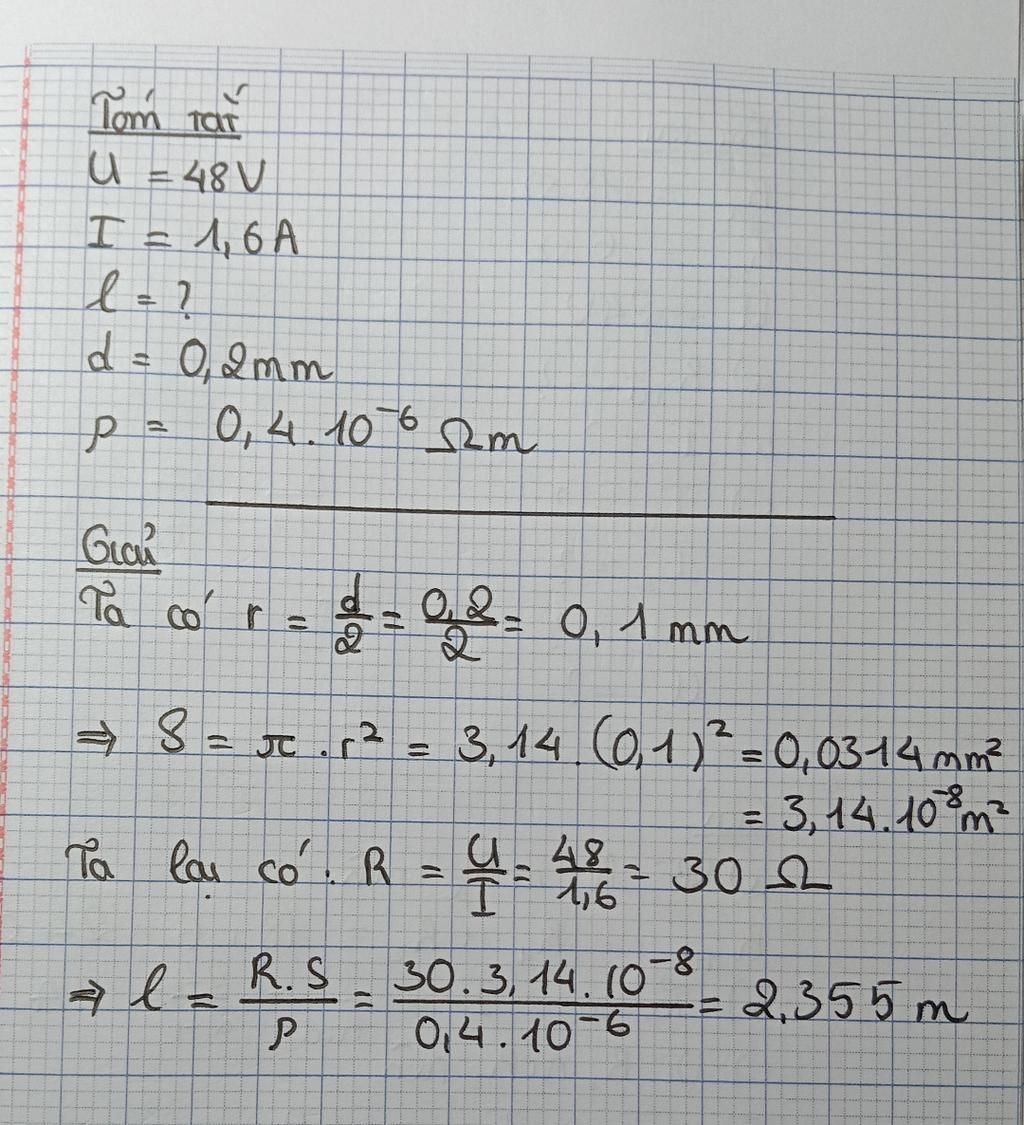 Tóm tắt
U = 48V
I = 1,6A
l = ?
d = 0,2mm
ρ = 0,4.10⁻⁶ Ωm
Giải
Ta có r = d/2 = 0,2/2 = 0,1 mm
⇒ S = π . r² = 3,14.(0,1)² = 0,0314mm²
= 3,14.10⁻⁸m²
Ta lại có. R = U/I = 48/1,6 = 30 Ω
⇒ l = R.S/ρ = 30.3,14.10⁻⁸/0,4.10⁻⁶ = 2,355 m